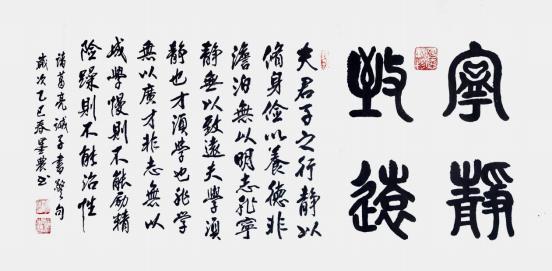 寧靜
致遠
夫君子之行靜以
脩身儉以養德非
澹泊無以明志非寧
靜無以致遠夫學須
靜也才須學也非學
無以廣才非志無以
成學慢則不能勵精
險躁則不能治性
諸葛亮誡子書警句
歲次乙巳春墨農书